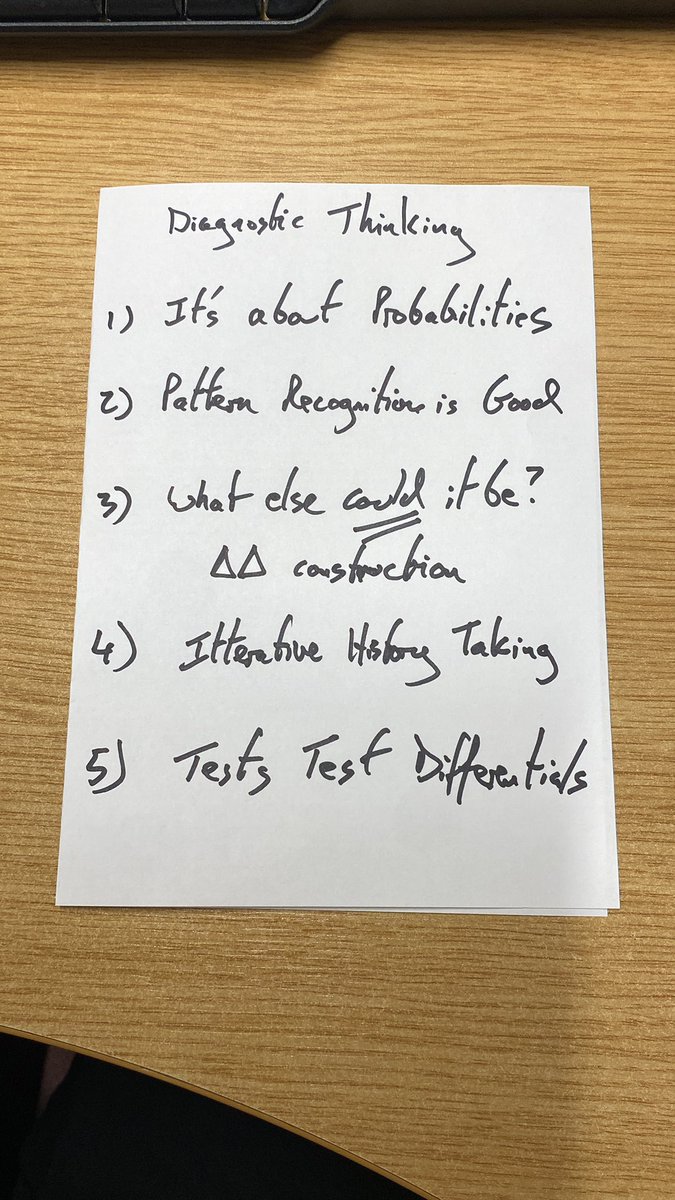 Diagnostic Thinking
1) It's about Probabilities
2) Pattern Recognition is Good
3) What else could it be?
ΔΔ construction
4) Itterative History Taking
5) Tests Test Differentials